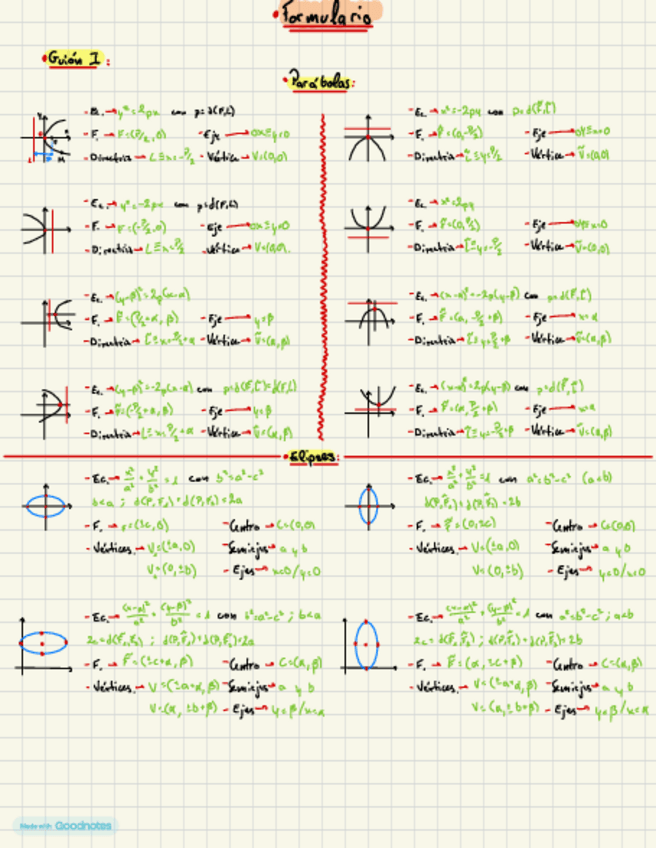 • Formulario
• Guión I:
• Parábolas:
- Ec. → y²=2px con p=d(F,L)
- F. → F=(P/2,0) - Eje → OX≡y=0
- Directriz → L≡x=-P/2 - Vértice → V=(0,0)
- Ec. → y²=-2px con p=d(F,L)
- F. → F=(-P/2,0) - Eje → OX≡y=0
- Directriz → L≡x=P/2 - Vértice → V=(0,0)
- Ec. → (y-β)²=2p(x-α)
- F. → F̃=(P/2+α,β) - Eje → y=β
- Directriz → L̃≡x=-P/2+α - Vértice → Ṽ=(α,β)
- Ec. → (y-β)²=-2p(x-α) con p=d(F̃,L̃)=d(F,L)
- F. → F̃=(-P/2+α,β) - Eje → y=β
- Directriz → L≡x=P/2+α - Vértice → Ṽ=(α,β)
- Ec. → x²=-2py con p=d(F̃,L̃)
- F. → F̃=(0,-P/2) - Eje → OY≡x=0
- Directriz → L̃≡y=P/2 - Vértice → Ṽ=(0,0)
- Ec. → x²=2py
- F. → F̃=(0,P/2) - Eje → OY≡x=0
- Directriz → L̃≡y=-P/2 - Vértice → Ṽ=(0,0)
- Ec. → (x-α)²=-2p(y-β) con p=d(F̃,L̃)
- F. → F̃=(α,-P/2+β) - Eje → x=α
- Directriz → L̃≡y=P/2+β - Vértice → Ṽ=(α,β)
- Ec. → (x-α)²=2p(y-β) con p=d(F̃,L̃)
- F. → F̃=(α,P/2+β) - Eje → x=α
- Directriz → L̃≡y=-P/2+β - Vértice → Ṽ=(α,β)
• Elipses:
- Ec. → x²/a²+y²/b²=1 con b²=a²-c²
b<a ; d(P,F₁)+d(P,F₂)=2a
- F. → F=(±c,0) - Centro → C=(0,0)
- Vértices → V=(±a,0) - Semiejes → a y b
V=(0,±b) - Ejes → x=0/y=0
- Ec. → x²/a²+y²/b²=1 con a²=b²-c² (a<b)
d(P,F̃₁)+d(P,F̃₂)=2b
- F. → F̃=(0,±c) - Centro → C=(0,0)
- Vértices → V=(±a,0) - Semiejes → a y b
V=(0,±b) - Ejes → y=0/x=0
- Ec. → (x-α)²/a²+(y-β)²/b²=1 con b²=a²-c² ; b<a
2c=d(F̃₁,F̃₂) ; d(P,F̃₁)+d(P,F̃₂)=2a
- F. → F̃=(±c+α,β) - Centro → C=(α,β)
- Vértices → V=(±a+α,β) - Semiejes → a y b
V=(α,±b+β) - Ejes → y=β/x=α
- Ec. → (x-α)²/a²+(y-β)²/b²=1 con a²=b²-c² ; a<b
2c=d(F̃₁,F̃₂) ; d(P,F̃₁)+d(P,F̃₂)=2b
- F. → F̃=(α,±c+β) - Centro → C=(α,β)
- Vértices → V=(±a+α,β) - Semiejes → a y b
V=(α,±b+β) - Ejes → y=β/x=α
Made with Goodnotes